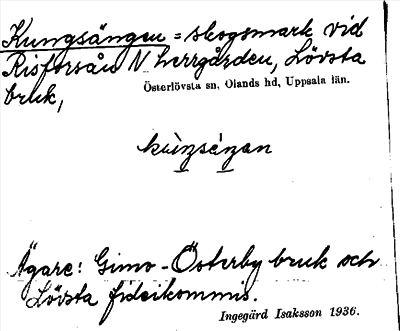 Kungsängen = skogsmark vid
Risforsån N herrgården, Lövsta
bruk,
Österlövsta sn, Olands hd, Uppsala län.
kùŋsèŋan
Ägare: Gimo-Österby bruk och
Lövsta fideikommis.
Ingegärd Isaksson 1936.